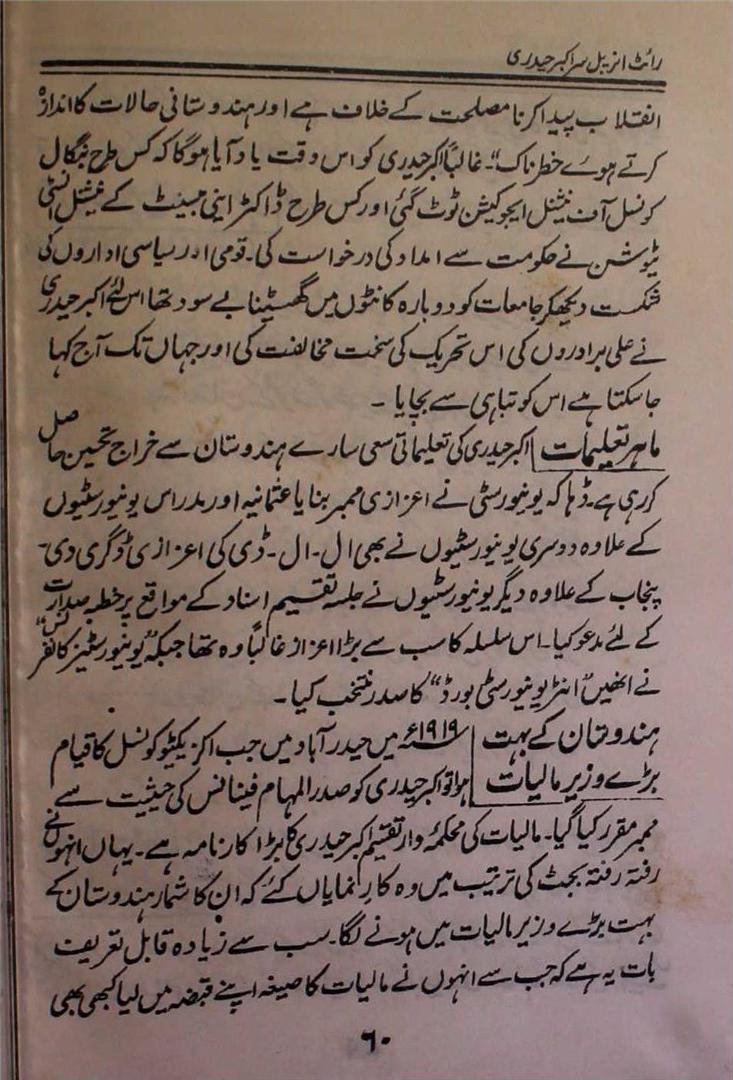 رائٹ انریبل سر اکبر حیدری
انقلاب پیدا کرنا مصلحت کے خلاف ہے اور ہندوستانی حالات کا اندازہ
کرتے ہوے خطرناک"۔ غالباً اکبر حیدری کو اس وقت یاد آیا ہوگا کہ کس طرح بنگال
کونسل آف نیشنل ایجوکیشن ٹوٹ گئی اور کس طرح ڈاکٹر اینی بیسنٹ کے نیشنل انسٹی
ٹیوشن نے حکومت سے امداد کی درخواست کی۔ قومی اور سیاسی اداروں کی
شکست دیکھکر جامعات کو دوبارہ کانٹوں میں گھسیٹنا بے سود تھا اس لئے اکبر حیدری
نے علی برادروں کی اس تحریک کی سخت مخالفت کی اور جہاں تک آج کہا
جاسکتا ہے اس کو تباہی سے بچایا ۔
ماہر تعلیمات اکبر حیدری کی تعلیماتی سعی سارے ہندوستان سے خراج تحسین حاصل
کر رہی ہے۔ ڈہاکہ یونیورسٹی نے اعزازی ممبر بنایا عثمانیہ اور مدراس یونیورسٹیوں
کے علاوہ دوسری یونیورسٹیوں نے بھی ال۔ ال۔ ڈی کی اعزازی ڈگری دی۔
پنجاب کے علاوہ دیگر یونیورسٹیوں نے جلسہ تقسیم اسناد کے مواقع پر خطبہ صدارت
کے لئے مدعو کیا۔ اس سلسلہ کا سب سے بڑا اعزاز غالباً وہ تھا جبکہ "یونیورسٹیز کانفرنس"
نے انھیں "انٹر یونیورسٹی بورڈ" کا صدر منتخب کیا۔
ہندوستان کے بہت ۱۹۱۹ء میں حیدرآباد میں جب اکزیکٹو کونسل کا قیام
بڑے وزیر مالیات ہوا تو اکبر حیدری کو صدر المہام فینانس کی حیثیت سے
ممبر مقرر کیا گیا۔ مالیات کی محکمہ وار تقسیم اکبر حیدری کا بڑا کارنامہ ہے۔ یہاں انہوں نے
رفتہ رفتہ بجٹ کی ترتیب میں وہ کار نمایاں کئے کہ ان کا شمار ہندوستان کے
بہت بڑے وزیر مالیات میں ہونے لگا۔ سب سے زیادہ قابل تعریف
بات یہ ہے کہ جب سے انہوں نے مالیات کا صیغہ اپنے قبضہ میں لیا کبھی بھی
۶۰